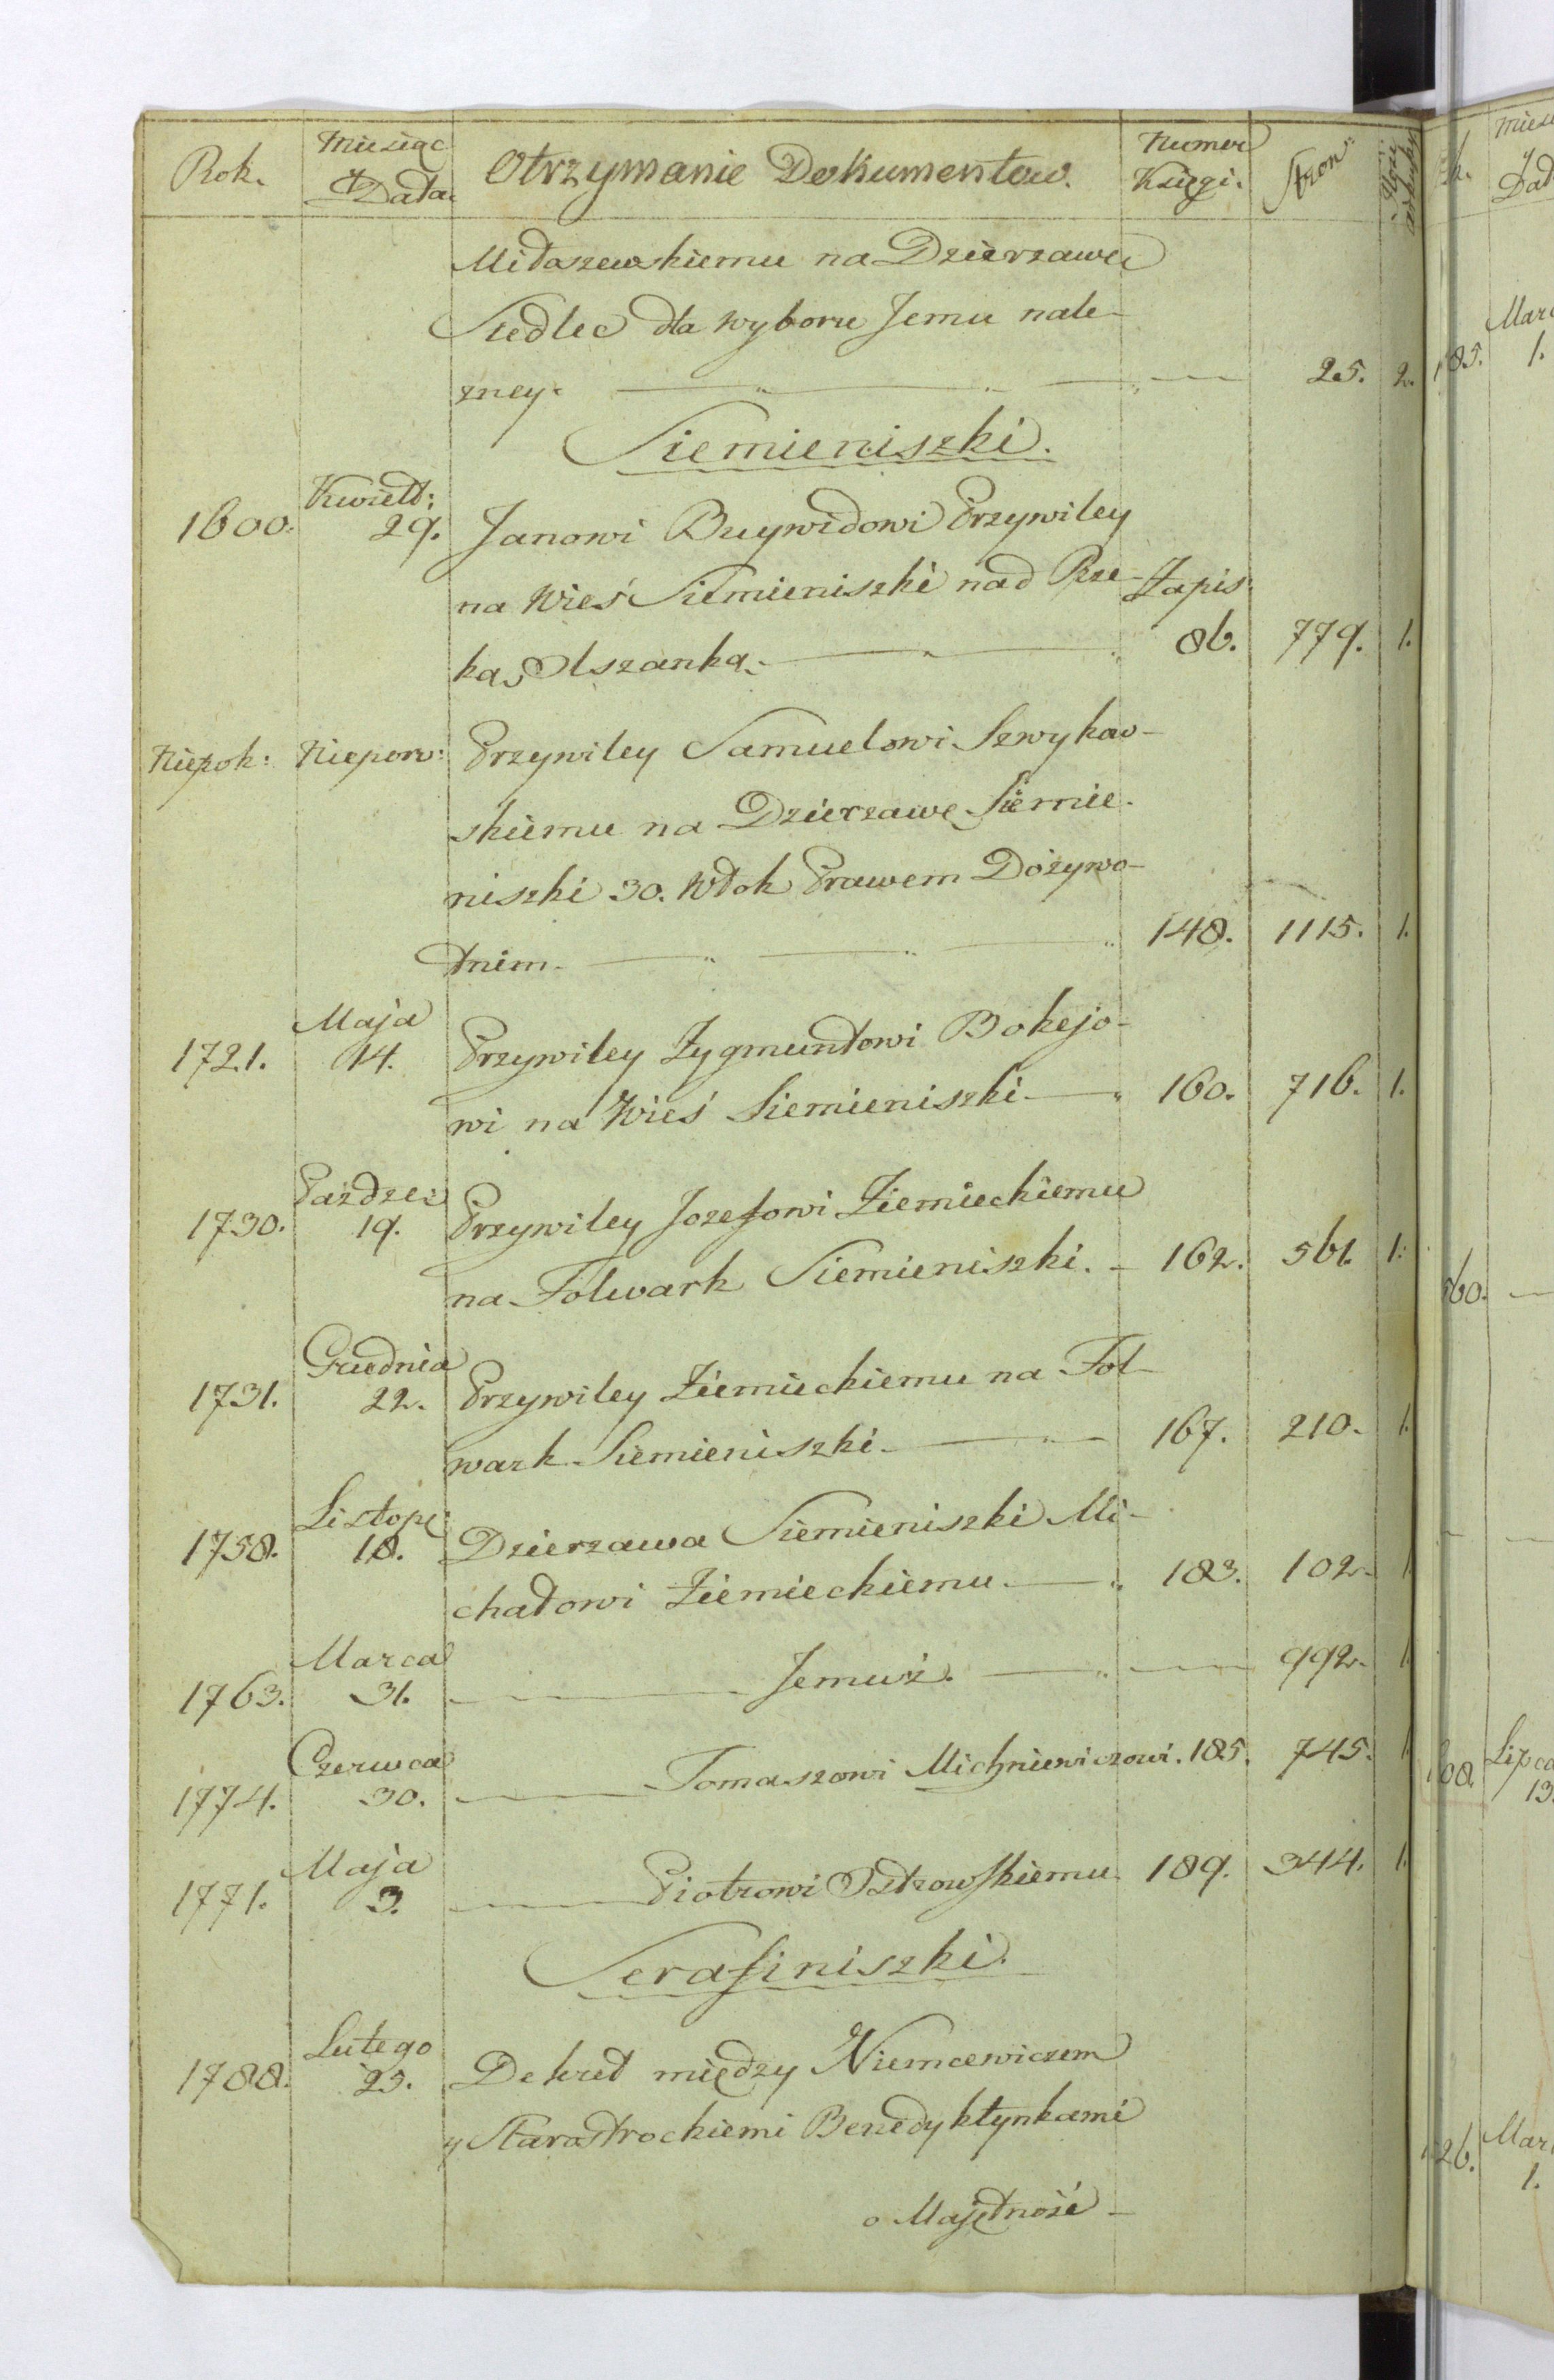 Rok. Miesiąc Otrzymanie Dokumentow. Numer Stron:
& Data Księgi.
Miłaszewskiemu na Dzierzawę
Siedlec dla wyboru Jemu nale-
zney. 25. 2.
Siemieniszki.
1600. Kwiet: 29. Janowi Buywidowi Przywiley
na Wieś Siemieniszki nad Rze- Zapis:
ką Olszanką. 86. 779. 1.
Nierok: Niepow: Przywiley Samuelowi Szwykow-
skiemu na Dzierzawę Siemie-
niszki 30. Włok Prawem Dożywo-
tnim. 148. 1115. 1.
1721. Maja 14. Przywiley Zygmuntowi Bokejo-
wi na Wieś Siemieniszki 160. 716. 1.
1730. Paździe: 19. Przywiley Jozefowi Ziemieckiemu
na Folwark Siemieniszki. 162. 561. 1.
1731. Grudnia 22. Przywiley Ziemieckiemu na Fol-
wark Siemieniszki. 167. 210. 1.
1758. Listop: 18. Dzierzawa Siemieniszki Mi-
chałowi Ziemieckiemu. 183. 102. 1
1763. Marca 31. Jemuż. 992. 1
1774. Czerwca 30. Tomaszowi Michniewiczowi. 185. 745. 1
1771. Maja 3. Piotrowi Ostrowskiemu 189. 344. 1.
Serafiniszki.
1788. Lutego 25. Dekret między Niemcewiczem
y Starotrockiemi Benedyktynkami
o Majętność